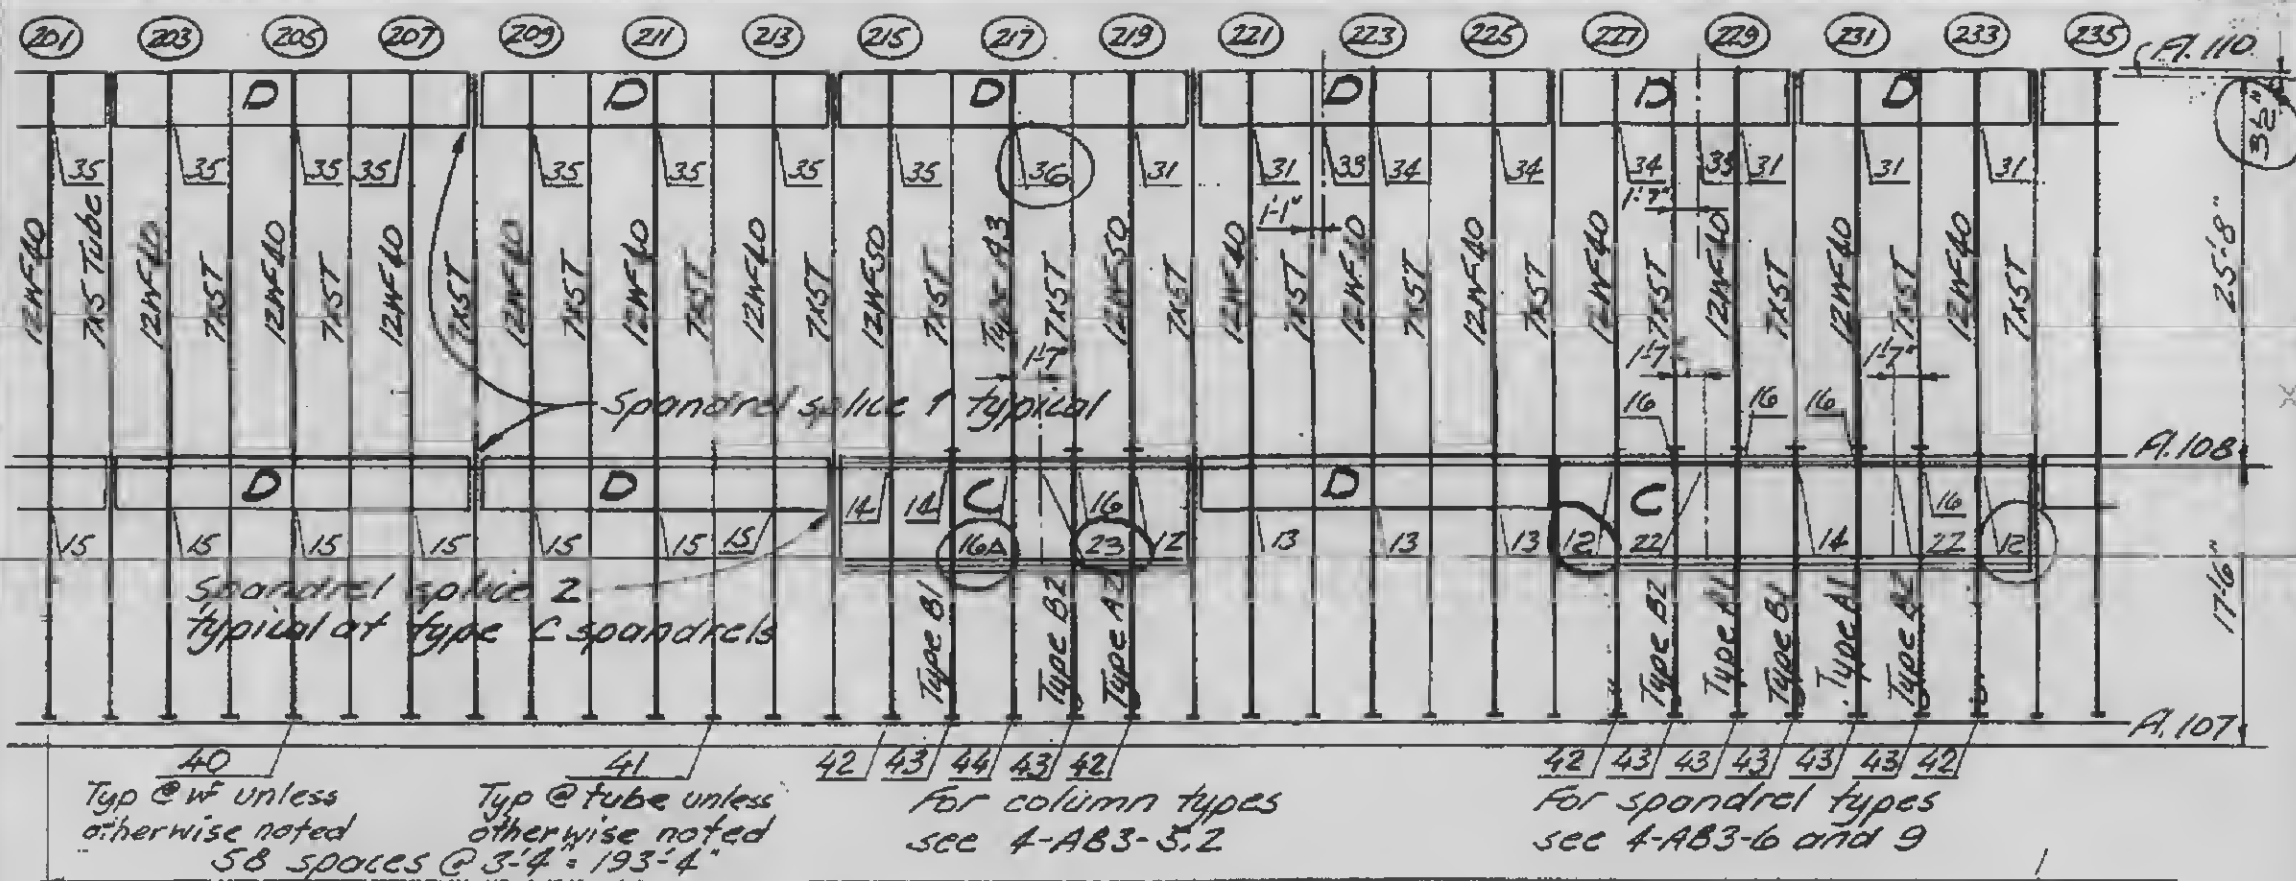 201 203 205 207 209 211 213 215 217 219 221 223 225 227 229 231 233 235
Fl. 110
D D D D D D
3½"
35 35 35 35 35 35 35 35 36 31 31 33 34 34 34 33 31 31 31
1'-1" 1'-7"
12WF40 7x5 Tube 12WF40 7x5T 12WF40 7x5T 12WF40 7x5T 12WF40 7x5T 12WF40 7x5T 12WF40 7x5T 12WF50 7x5T Type A3 7x5T 12WF50 7x5T 12WF40 7x5T 12WF40 7x5T 12WF40 7x5T 12WF40 7x5T 12WF40 7x5T 12WF40 7x5T 12WF40 7x5T
25'-8"
1'-7" 1'-7" 1'-7"
Spandrel splice 1 typical
16 16 16
Fl. 108
D D C D C
14 14 16 16
15 15 15 15 15 15 15 16A 23 12 13 13 13 12 22 14 22 12
Spandrel splice 2
typical at type C spandrels
Type B1 Type B2 Type A2 Type B2 Type A1 Type B1 Type A1 Type B2
17'-6"
Fl. 107
40 41 42 43 44 43 42 42 43 43 43 43 43 42
Typ @ wf unless
otherwise noted
Typ @ tube unless
otherwise noted
For column types
see 4-AB3-5.2
For spandrel types
see 4-AB3-6 and 9
58 spaces @ 3'-4" = 193'-4"